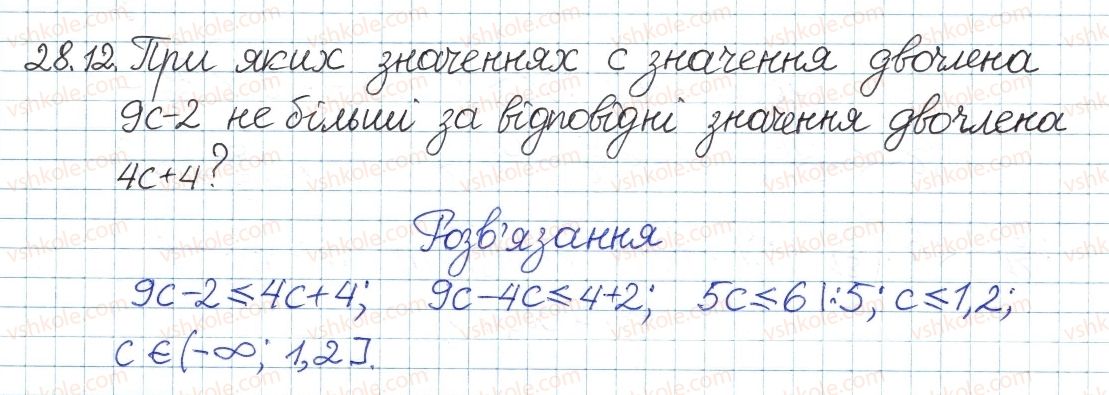 28.12. При яких значеннях с значення двочлена
9с-2 не більші за відповідні значення двочлена
4с+4?
Розв'язання
9с-2≤4с+4; 9с-4с≤4+2; 5с≤6 |:5; с≤1,2;
с є (-∞; 1,2].